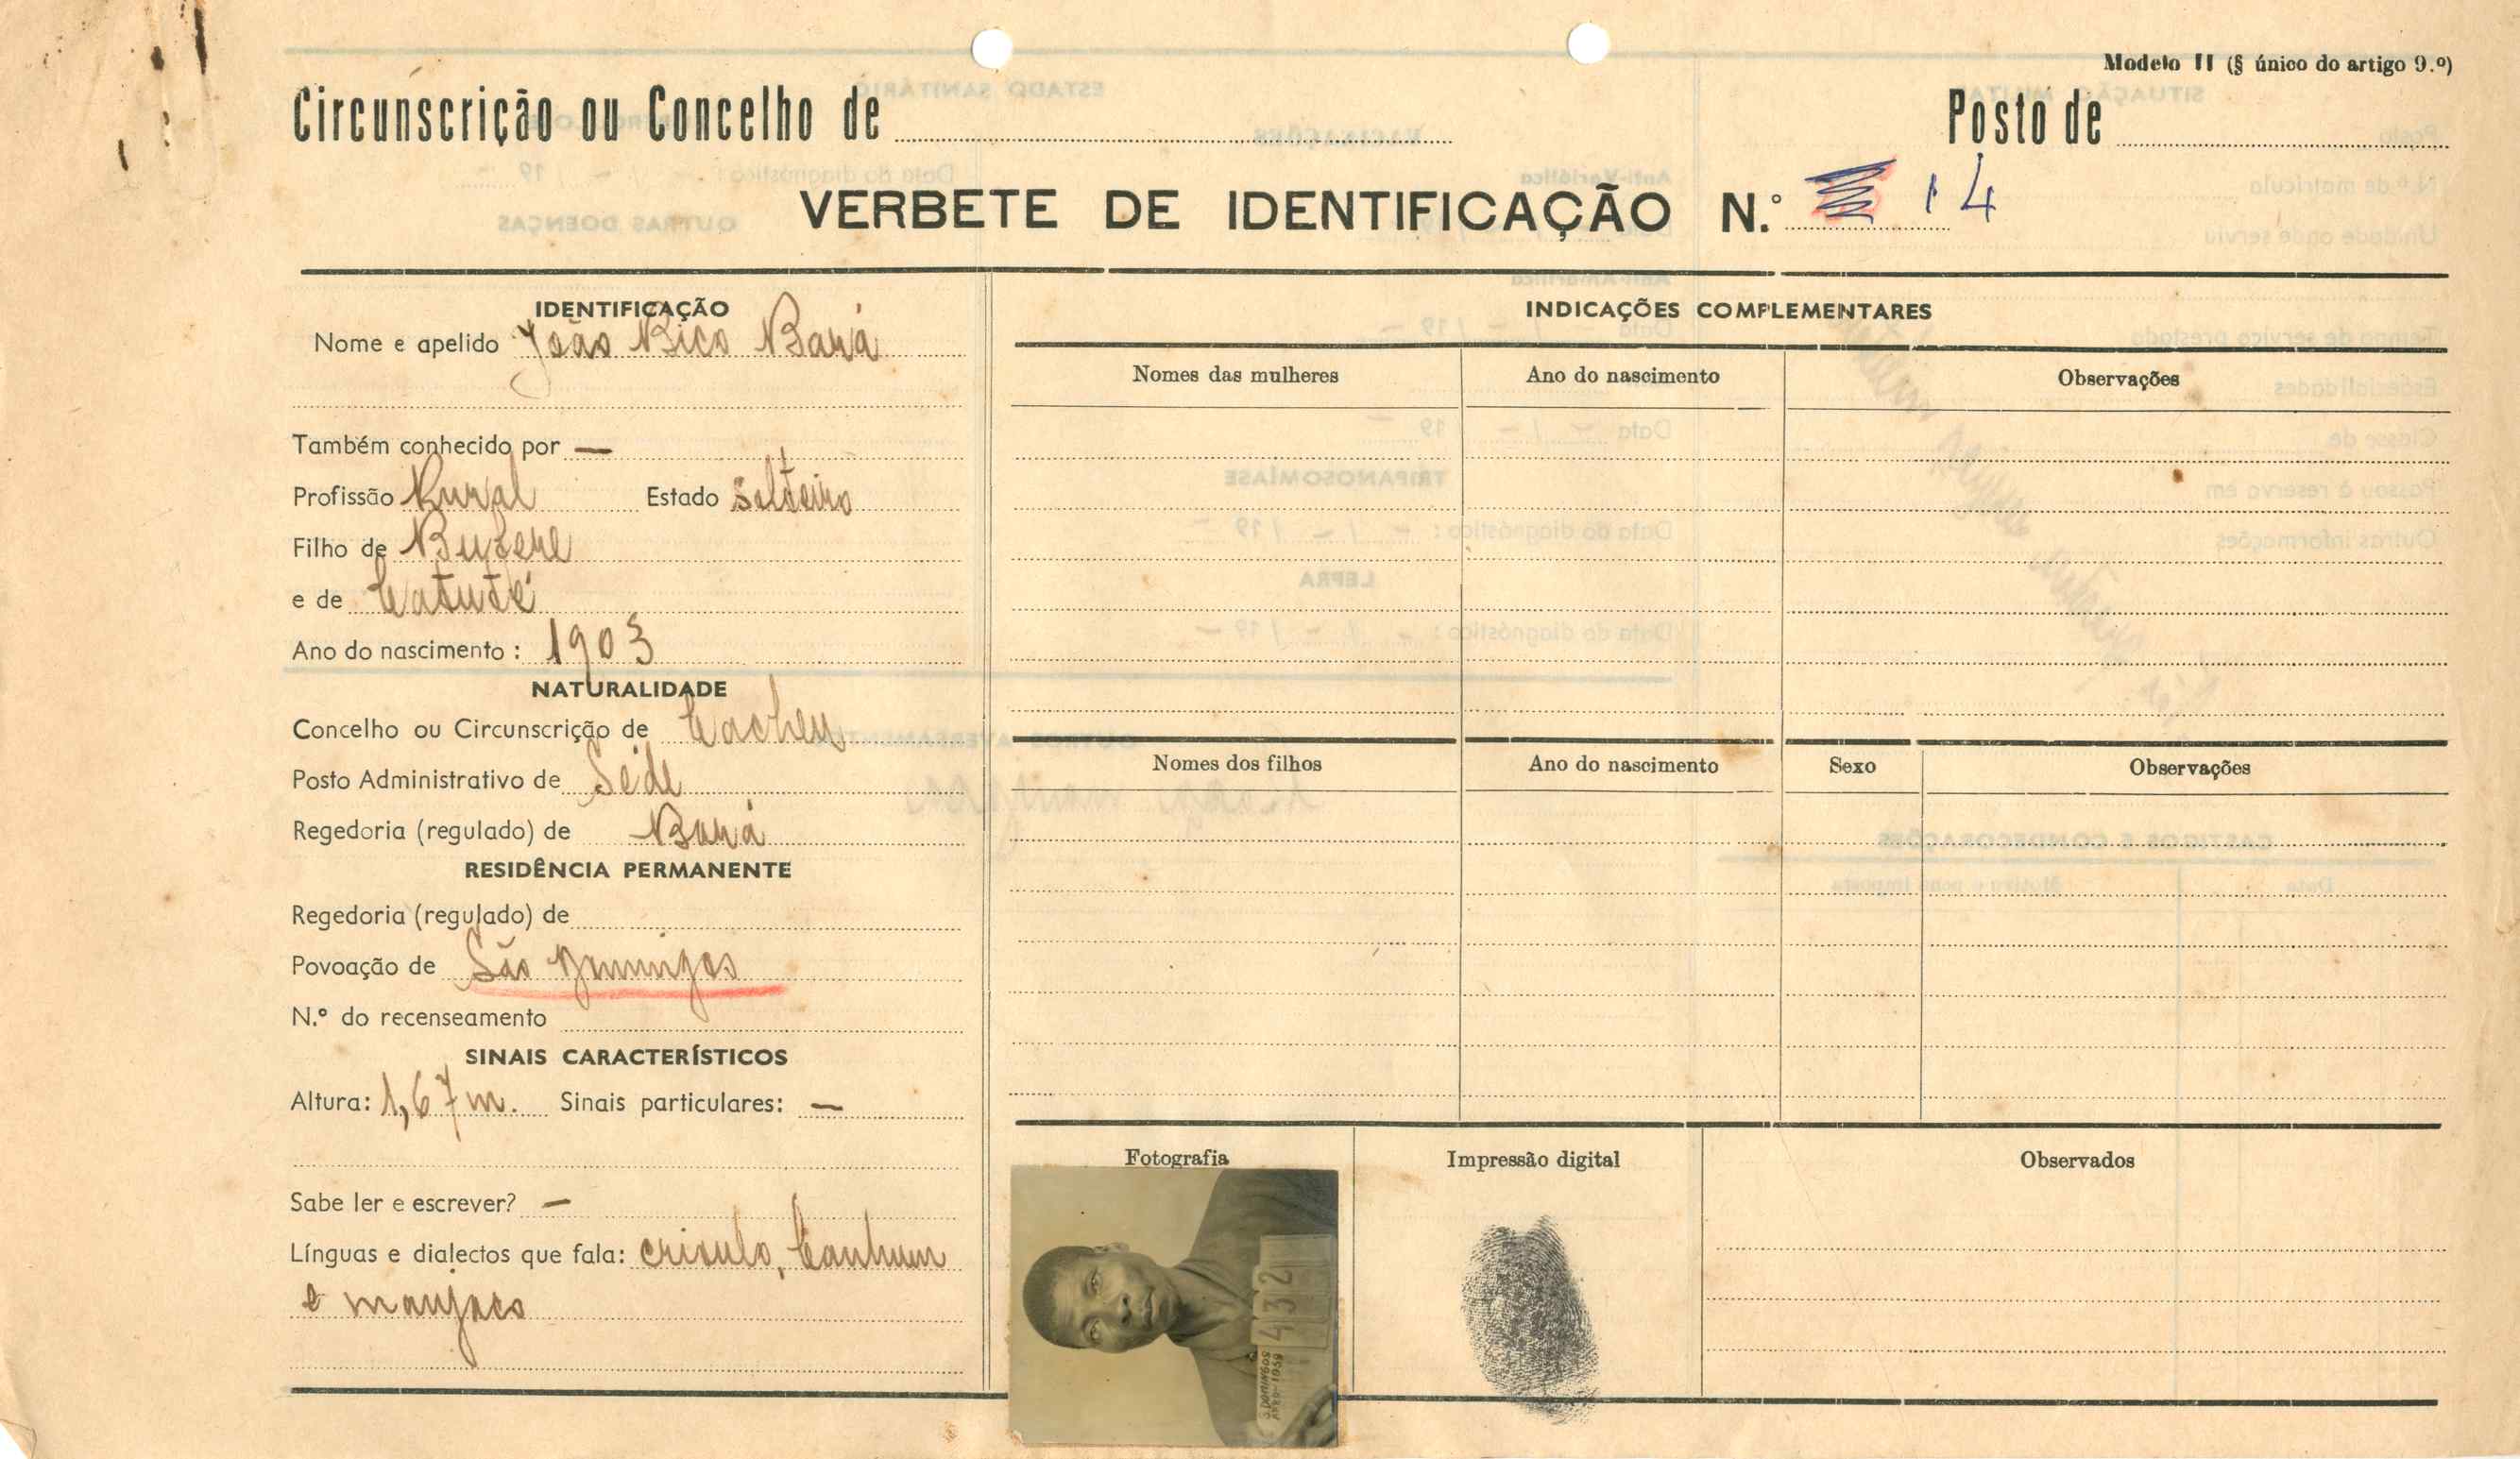 Modelo II (§ único do artigo 9.º)
Circunscrição ou Concelho de
Posto de
VERBETE DE IDENTIFICAÇÃO N.º 14
IDENTIFICAÇÃO
Nome e apelido João Bico Bará
Também conhecido por —
Profissão Rural Estado Solteiro
Filho de
e de Catuté
Ano do nascimento: 1903
NATURALIDADE
Concelho ou Circunscrição de Cacheu
Posto Administrativo de Séde
Regedoria (regulado) de Bará
RESIDÊNCIA PERMANENTE
Regedoria (regulado) de
Povoação de São Domingos
N.º do recenseamento
SINAIS CARACTERÍSTICOS
Altura: 1,67 m. Sinais particulares: —
Sabe ler e escrever? —
Línguas e dialectos que fala: crioulo, Canhum
e manjaco
INDICAÇÕES COMPLEMENTARES
Nomes das mulheres Ano do nascimento Observações
Nomes dos filhos Ano do nascimento Sexo Observações
Fotografia Impressão digital Observados
432
S. DOMINGOS
ANO-1959